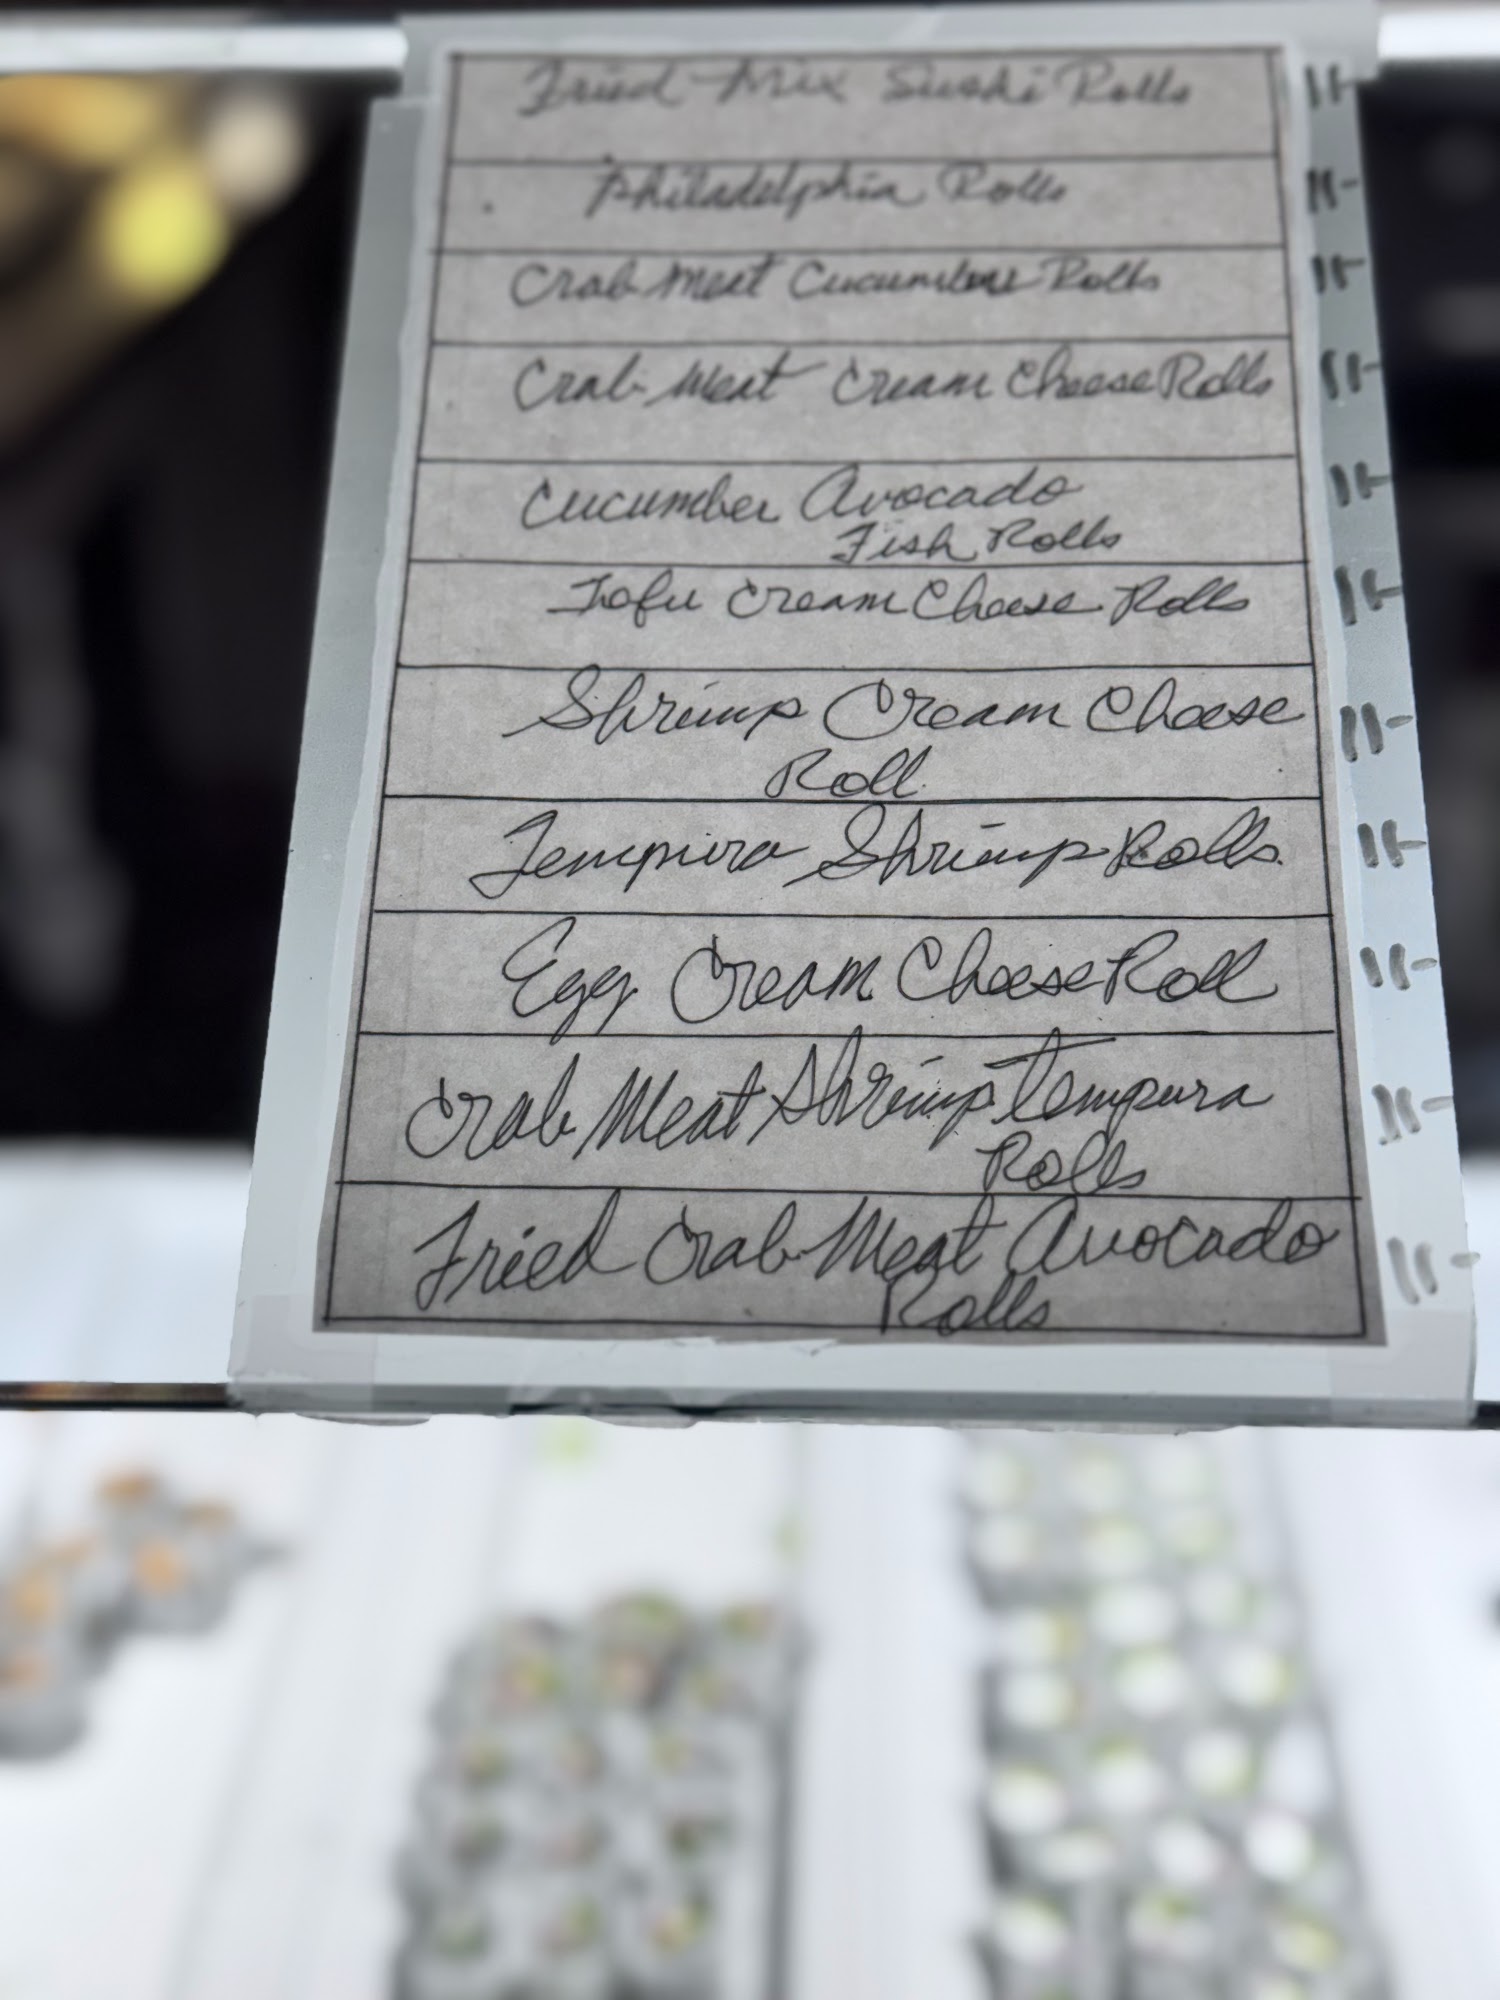 Fried Mix Sushi Rolls 11-
Philadelphia Rolls 11-
Crab Meat Cucumber Rolls 11-
Crab Meat Cream Cheese Rolls 11-
Cucumber Avocado 11-
Fish Rolls
Tofu Cream Cheese Rolls 11-
Shrimp Cream Cheese 11-
Roll
Tempura Shrimp Rolls 11-
Egg Cream Cheese Roll 11-
Crab Meat Shrimp Tempura 11-
Rolls
Fried Crab Meat Avocado 11-
Rolls